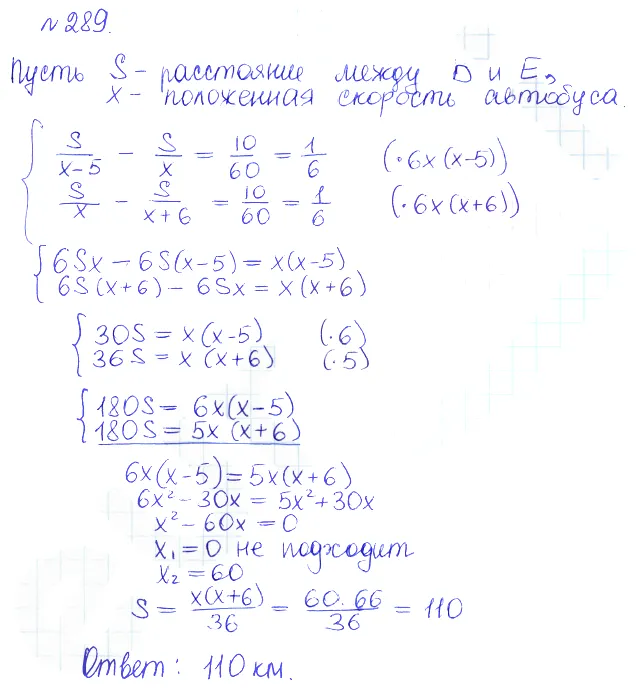 №289.
Пусть S - расстояние между D и E,
x - положенная скорость автобуса.
S/(x-5) - S/x = 10/60 = 1/6 (·6x(x-5))
S/x - S/(x+6) = 10/60 = 1/6 (·6x(x+6))
6Sx - 6S(x-5) = x(x-5)
6S(x+6) - 6Sx = x(x+6)
30S = x(x-5) (·6)
36S = x(x+6) (·5)
180S = 6x(x-5)
180S = 5x(x+6)
6x(x-5) = 5x(x+6)
6x² - 30x = 5x² + 30x
x² - 60x = 0
x₁ = 0 не подходит
x₂ = 60
S = x(x+6)/36 = 60·66/36 = 110
Ответ: 110 км.